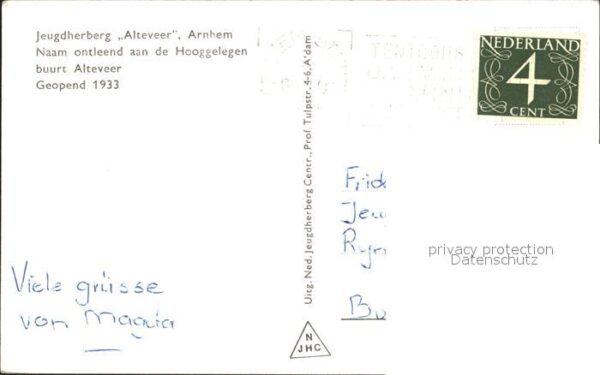 Jeugdherberg „Alteveer”, Arnhem
Naam ontleend aan de Hooggelegen
buurt Alteveer
Geopend 1933
NEDERLAND
4
CENT
Uitg. Ned. Jeugdherberg Centr., Prof. Tulpstr. 4-6, A'dam
privacy protection
Datenschutz
Viele grüsse
von Magda
N
JHC